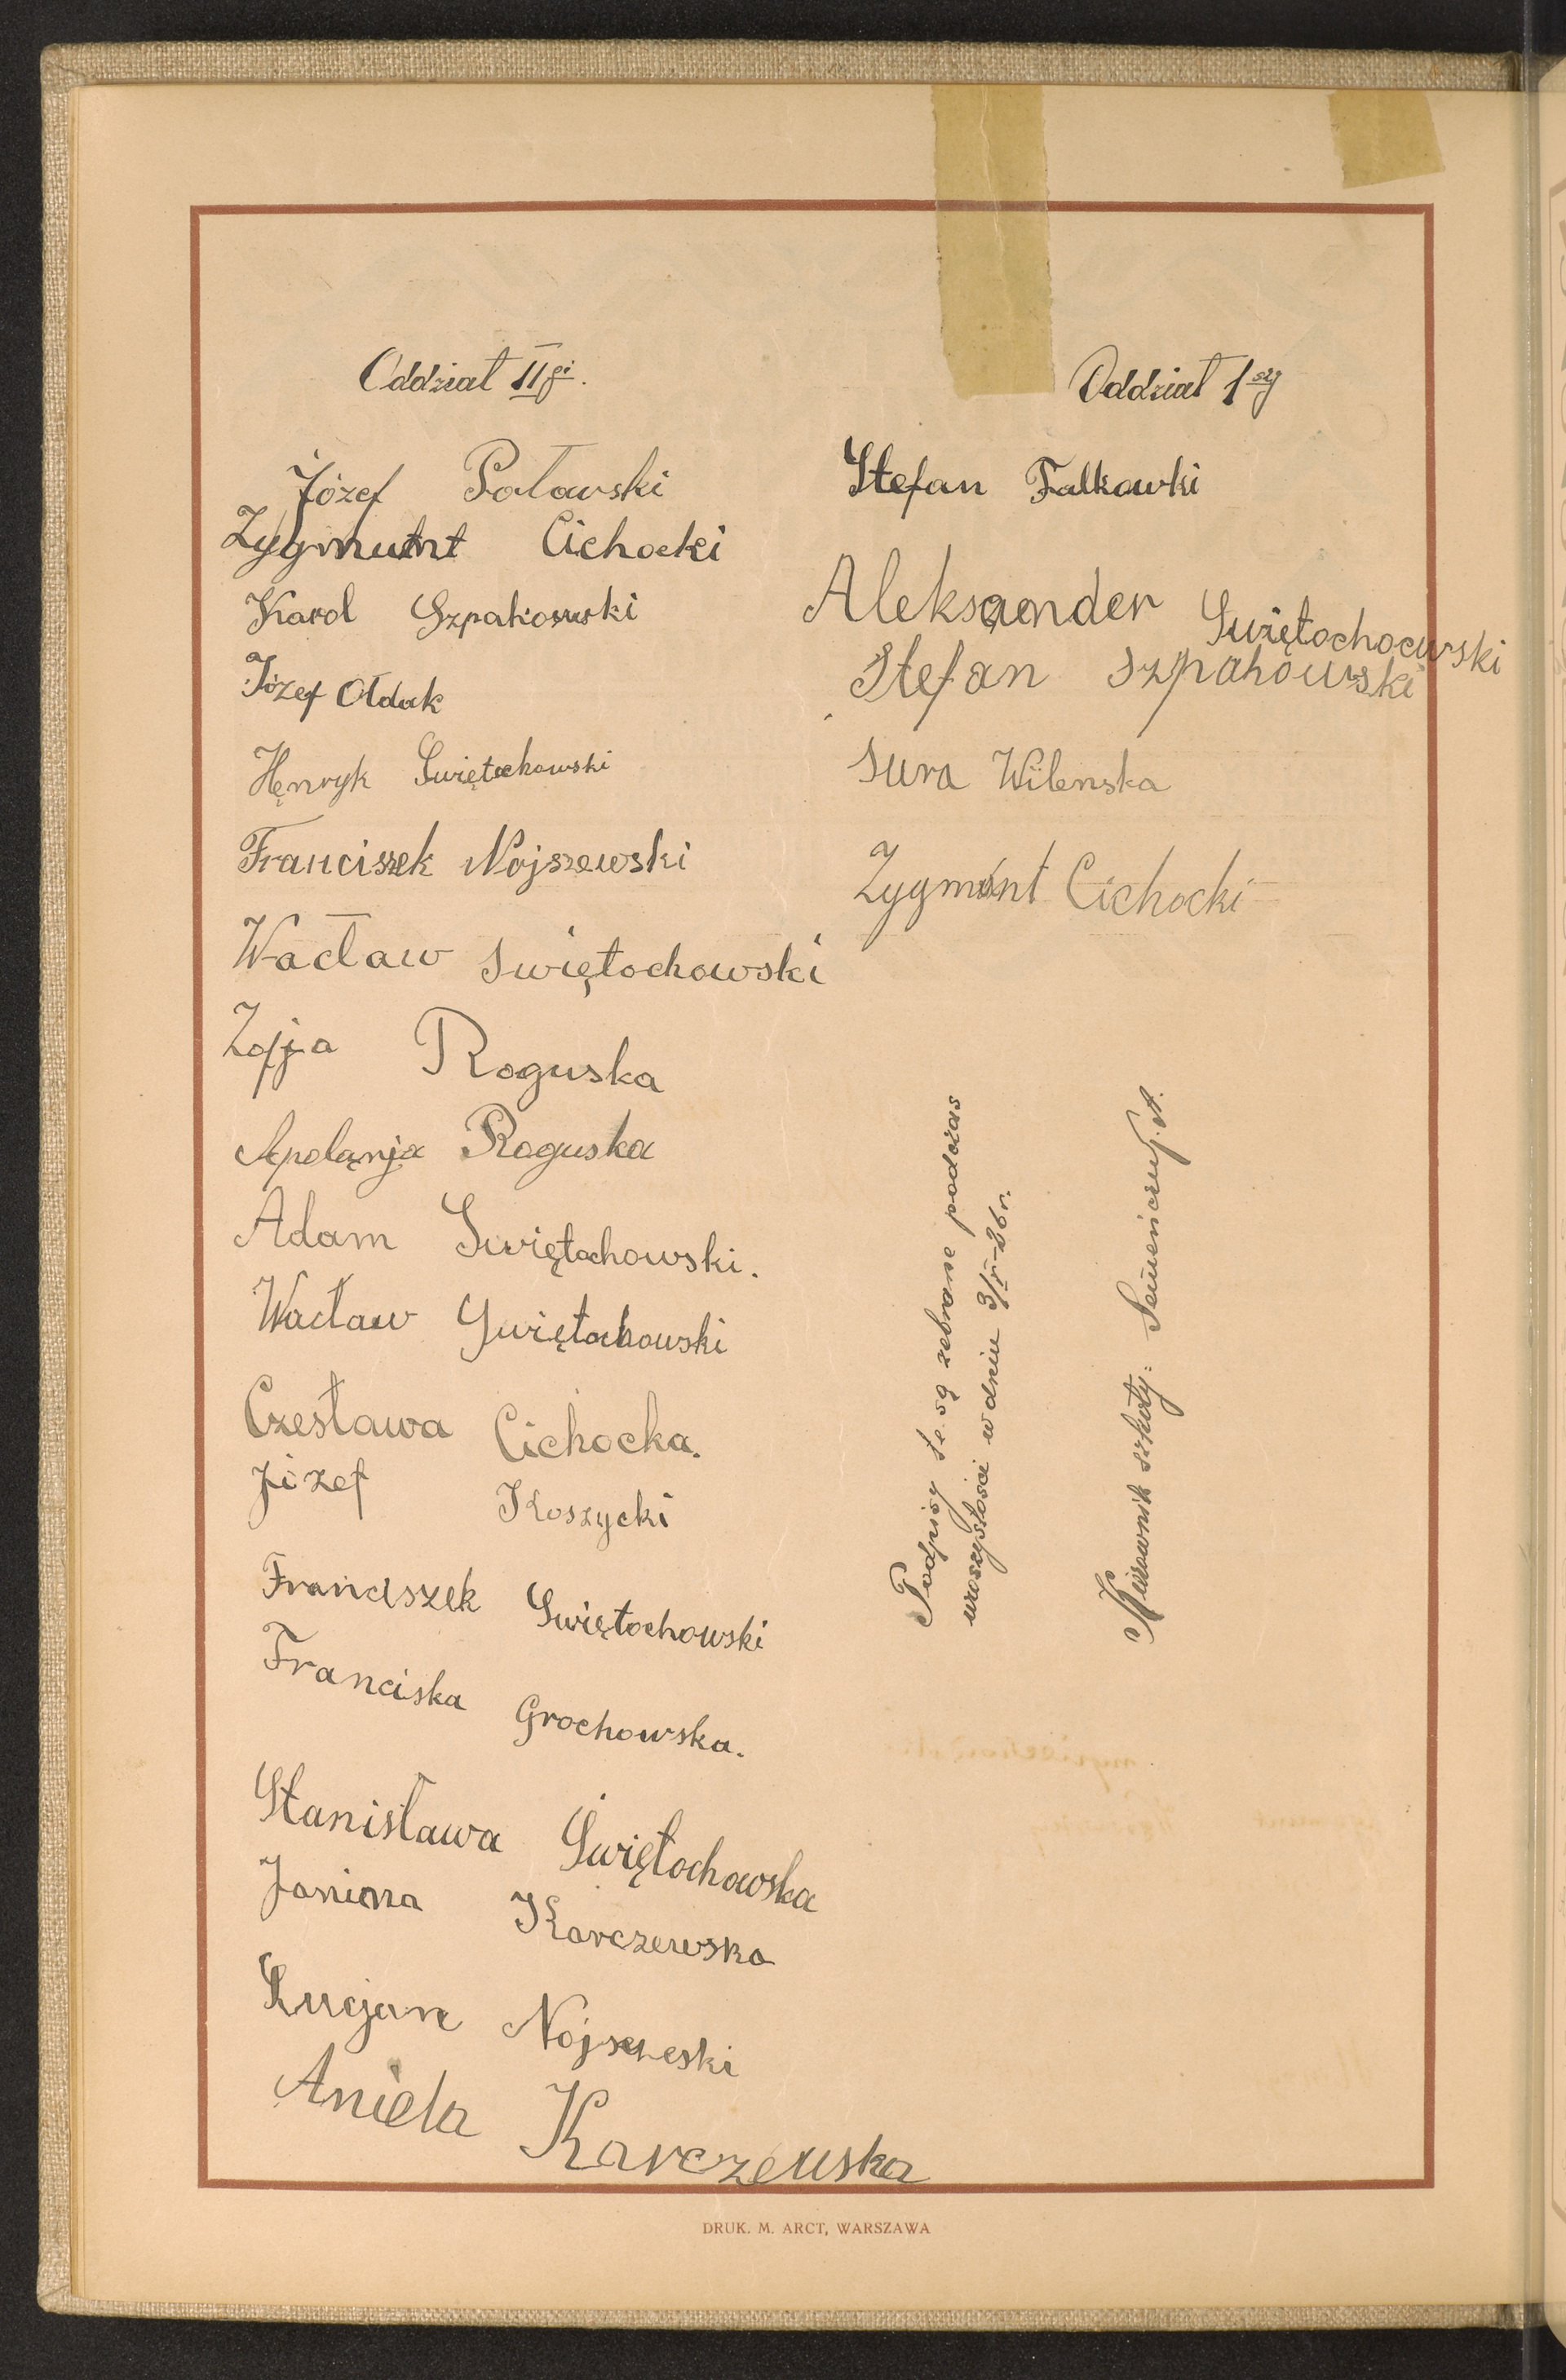 Oddział IIgi.
Józef Połowski
Zygmutnt Cichocki
Karol Szpakowski
Józef Ołdak
Hęnryk Swiętochowski
Franciszek Nojszewski
Wacław Swiętochowski
Zofja Roguska
Apoląnja Roguska
Adam Swiętochowski.
Wacław Swiętochowski
Czesława Cichocka.
Józef Koszycki
Franciszek Swiętochowski
Franciska Grochowska.
Stanisława Świętochowska
Janina Karczewska
Lucjan Nojszeski
Aniela Karczewska
Oddział 1szy
Stefan Falkowki
Aleksąender Swiętochocwski
Stefan Szpahowski
Sura Wilenska
Zygmónt Cichocki
Podpisy te są zebrane podczas
uroczystości w dniu 3/V-26 r.
Kierownik szkoły:
DRUK. M. ARCT, WARSZAWA